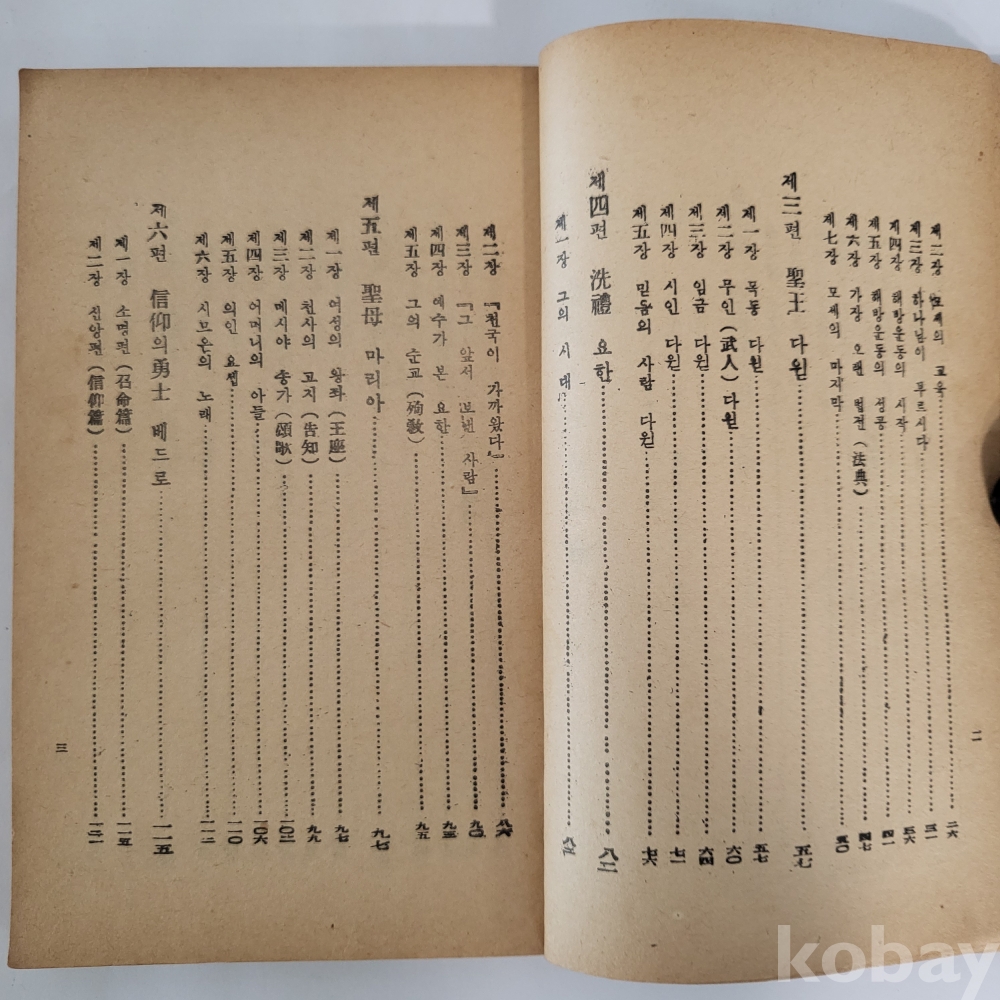 제二장 모세의 교육 二六
제三장 하나님이 부르시다 三一
제四장 해방운동의 시작 三六
제五장 해방운동의 성공 四一
제六장 가장 오랜 법전(法典) 四七
제七장 모세의 마지막 五〇
제三편 聖王 다윗 五七
제一장 목동 다윗 五七
제二장 무인(武人)다윗 六〇
제三장 임금 다윗 六四
제四장 시인 다윗 七一
제五장 믿음의 사람 다윗 七六
제四편 洗禮 요한 八二
제一장 그의 시대 八二
二
제二장 『천국이 가까왔다』 八六
제三장 『그 앞서 보낸 사람』 九〇
제四장 예수가 본 요한 九三
제五장 그의 순교(殉敎) 九五
제五편 聖母 마리아 九七
제一장 여성의 왕좌(王座) 九七
제二장 천사의 고지(告知) 九九
제三장 메시야 송가(頌歌) 一〇二
제四장 어머니의 아들 一〇六
제五장 의인 요셉 一一〇
제六장 시므온의 노래 一一二
제六편 信仰의 勇士 베드로 一一五
제一장 소명편(召命篇) 一一五
제二장 신앙편(信仰篇) 一二一
三
kobay